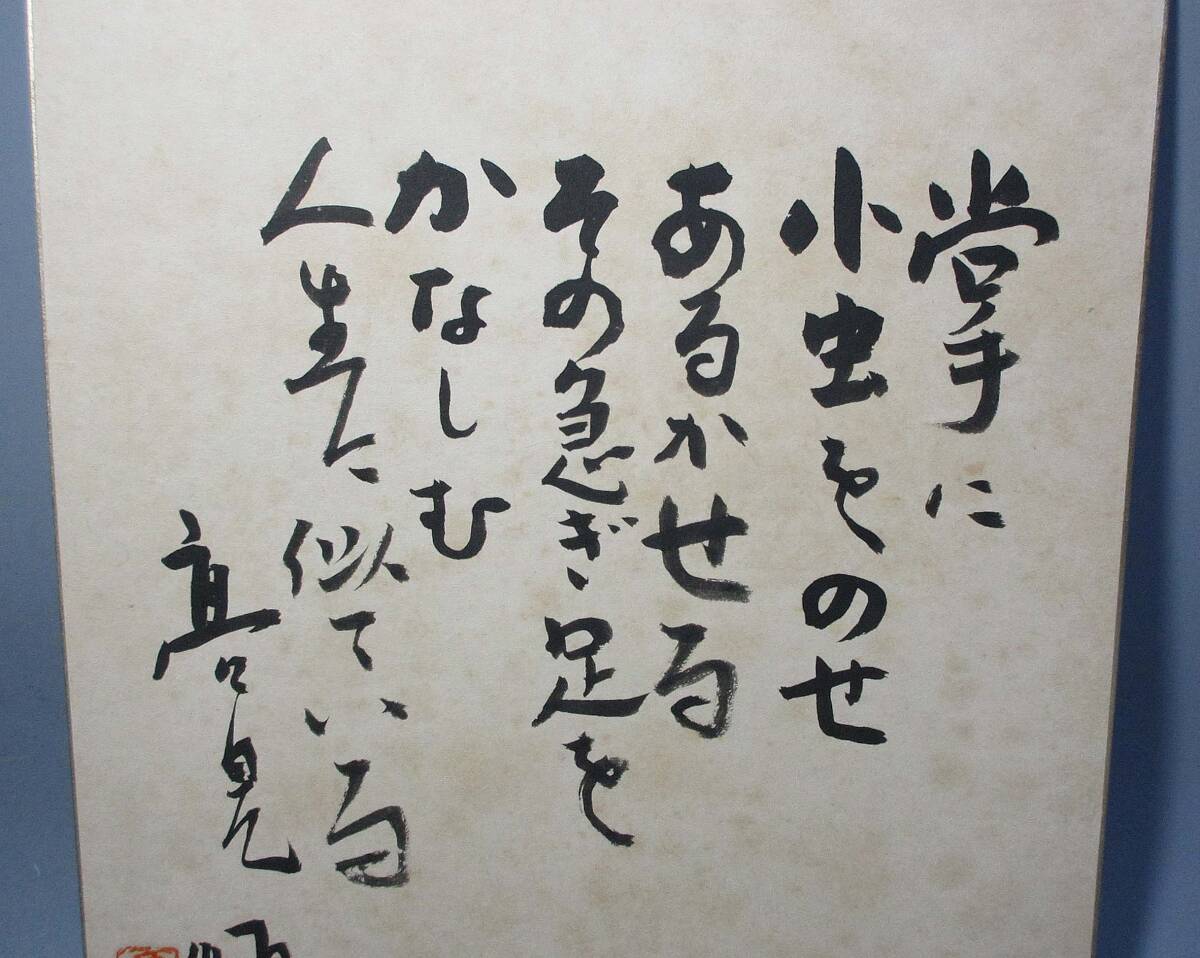 掌に
小虫をのせ
あるかせる
その急ぎ足を
かなしむ
人生に似ている
高見